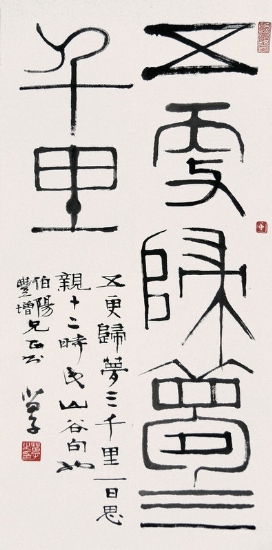 五更歸夢三
千里
五更歸夢三千里一日思
親十二時山谷句也
伯陽
豐增兄正